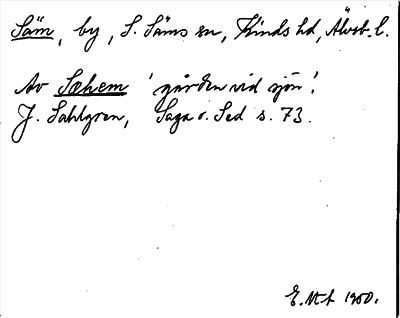 Säm, by, S. Säms sn, Kinds hd, Älvsb. l.
Av Sæhem 'gården vid sjön'.
J. Sahlgren, Saga o. Sed s. 73.
E. Mt 1950.